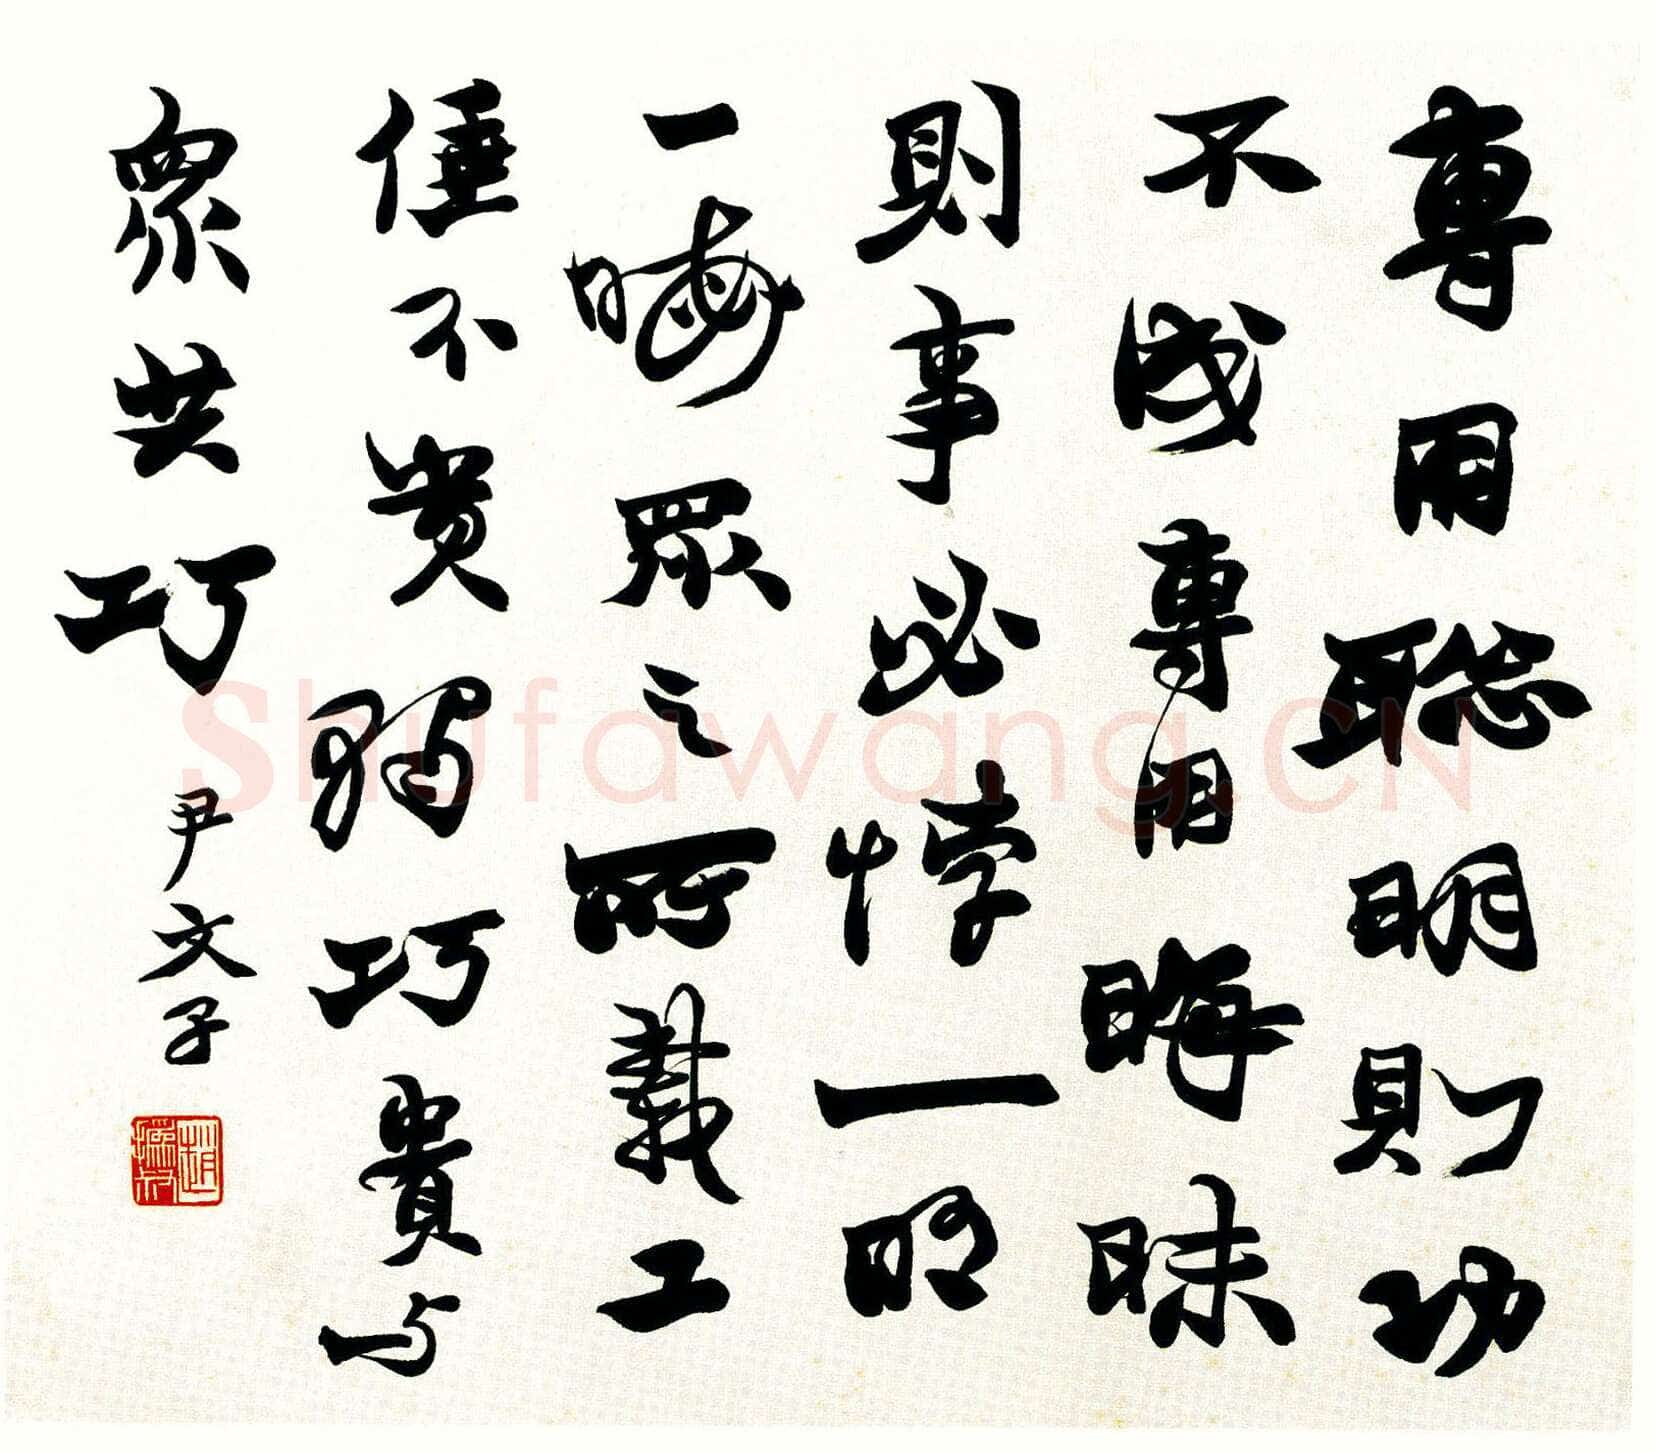 專用聰明則功
不成專用晦昧
則事必悖一明
一晦眾之所載工
倕不貴獨巧貴与
眾共巧
尹文子
趙撝叔
Shufawang.CN